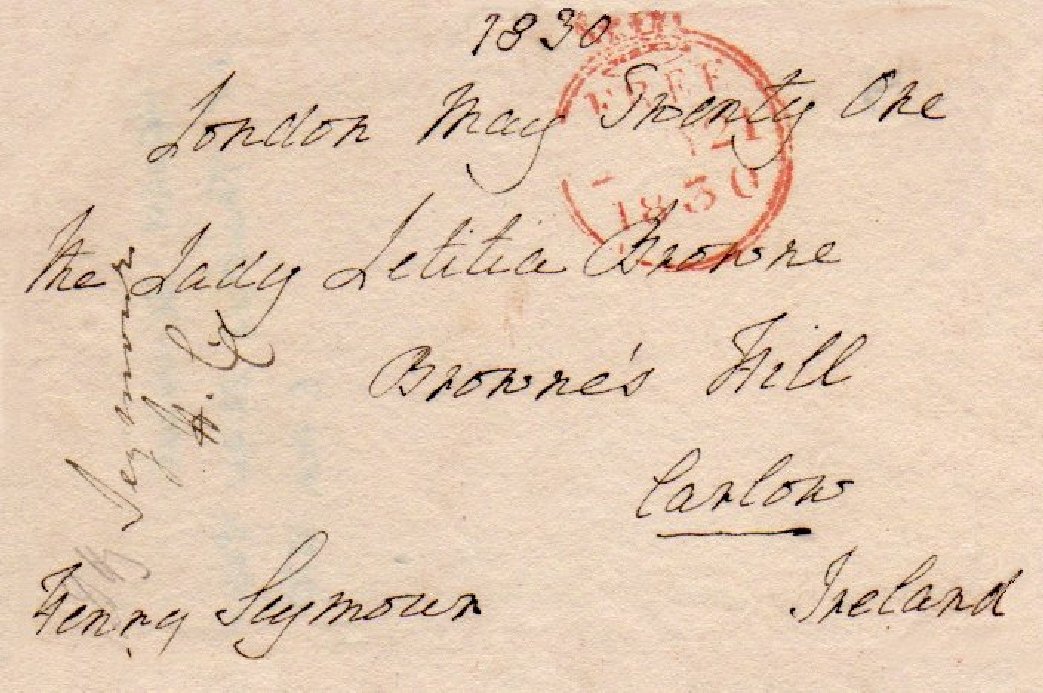 1830
London May Twenty One
The Lady Letitia Browne
Browne's Hill
Carlow
Ireland
Henry Seymour
Seymour
FREE
21
1830